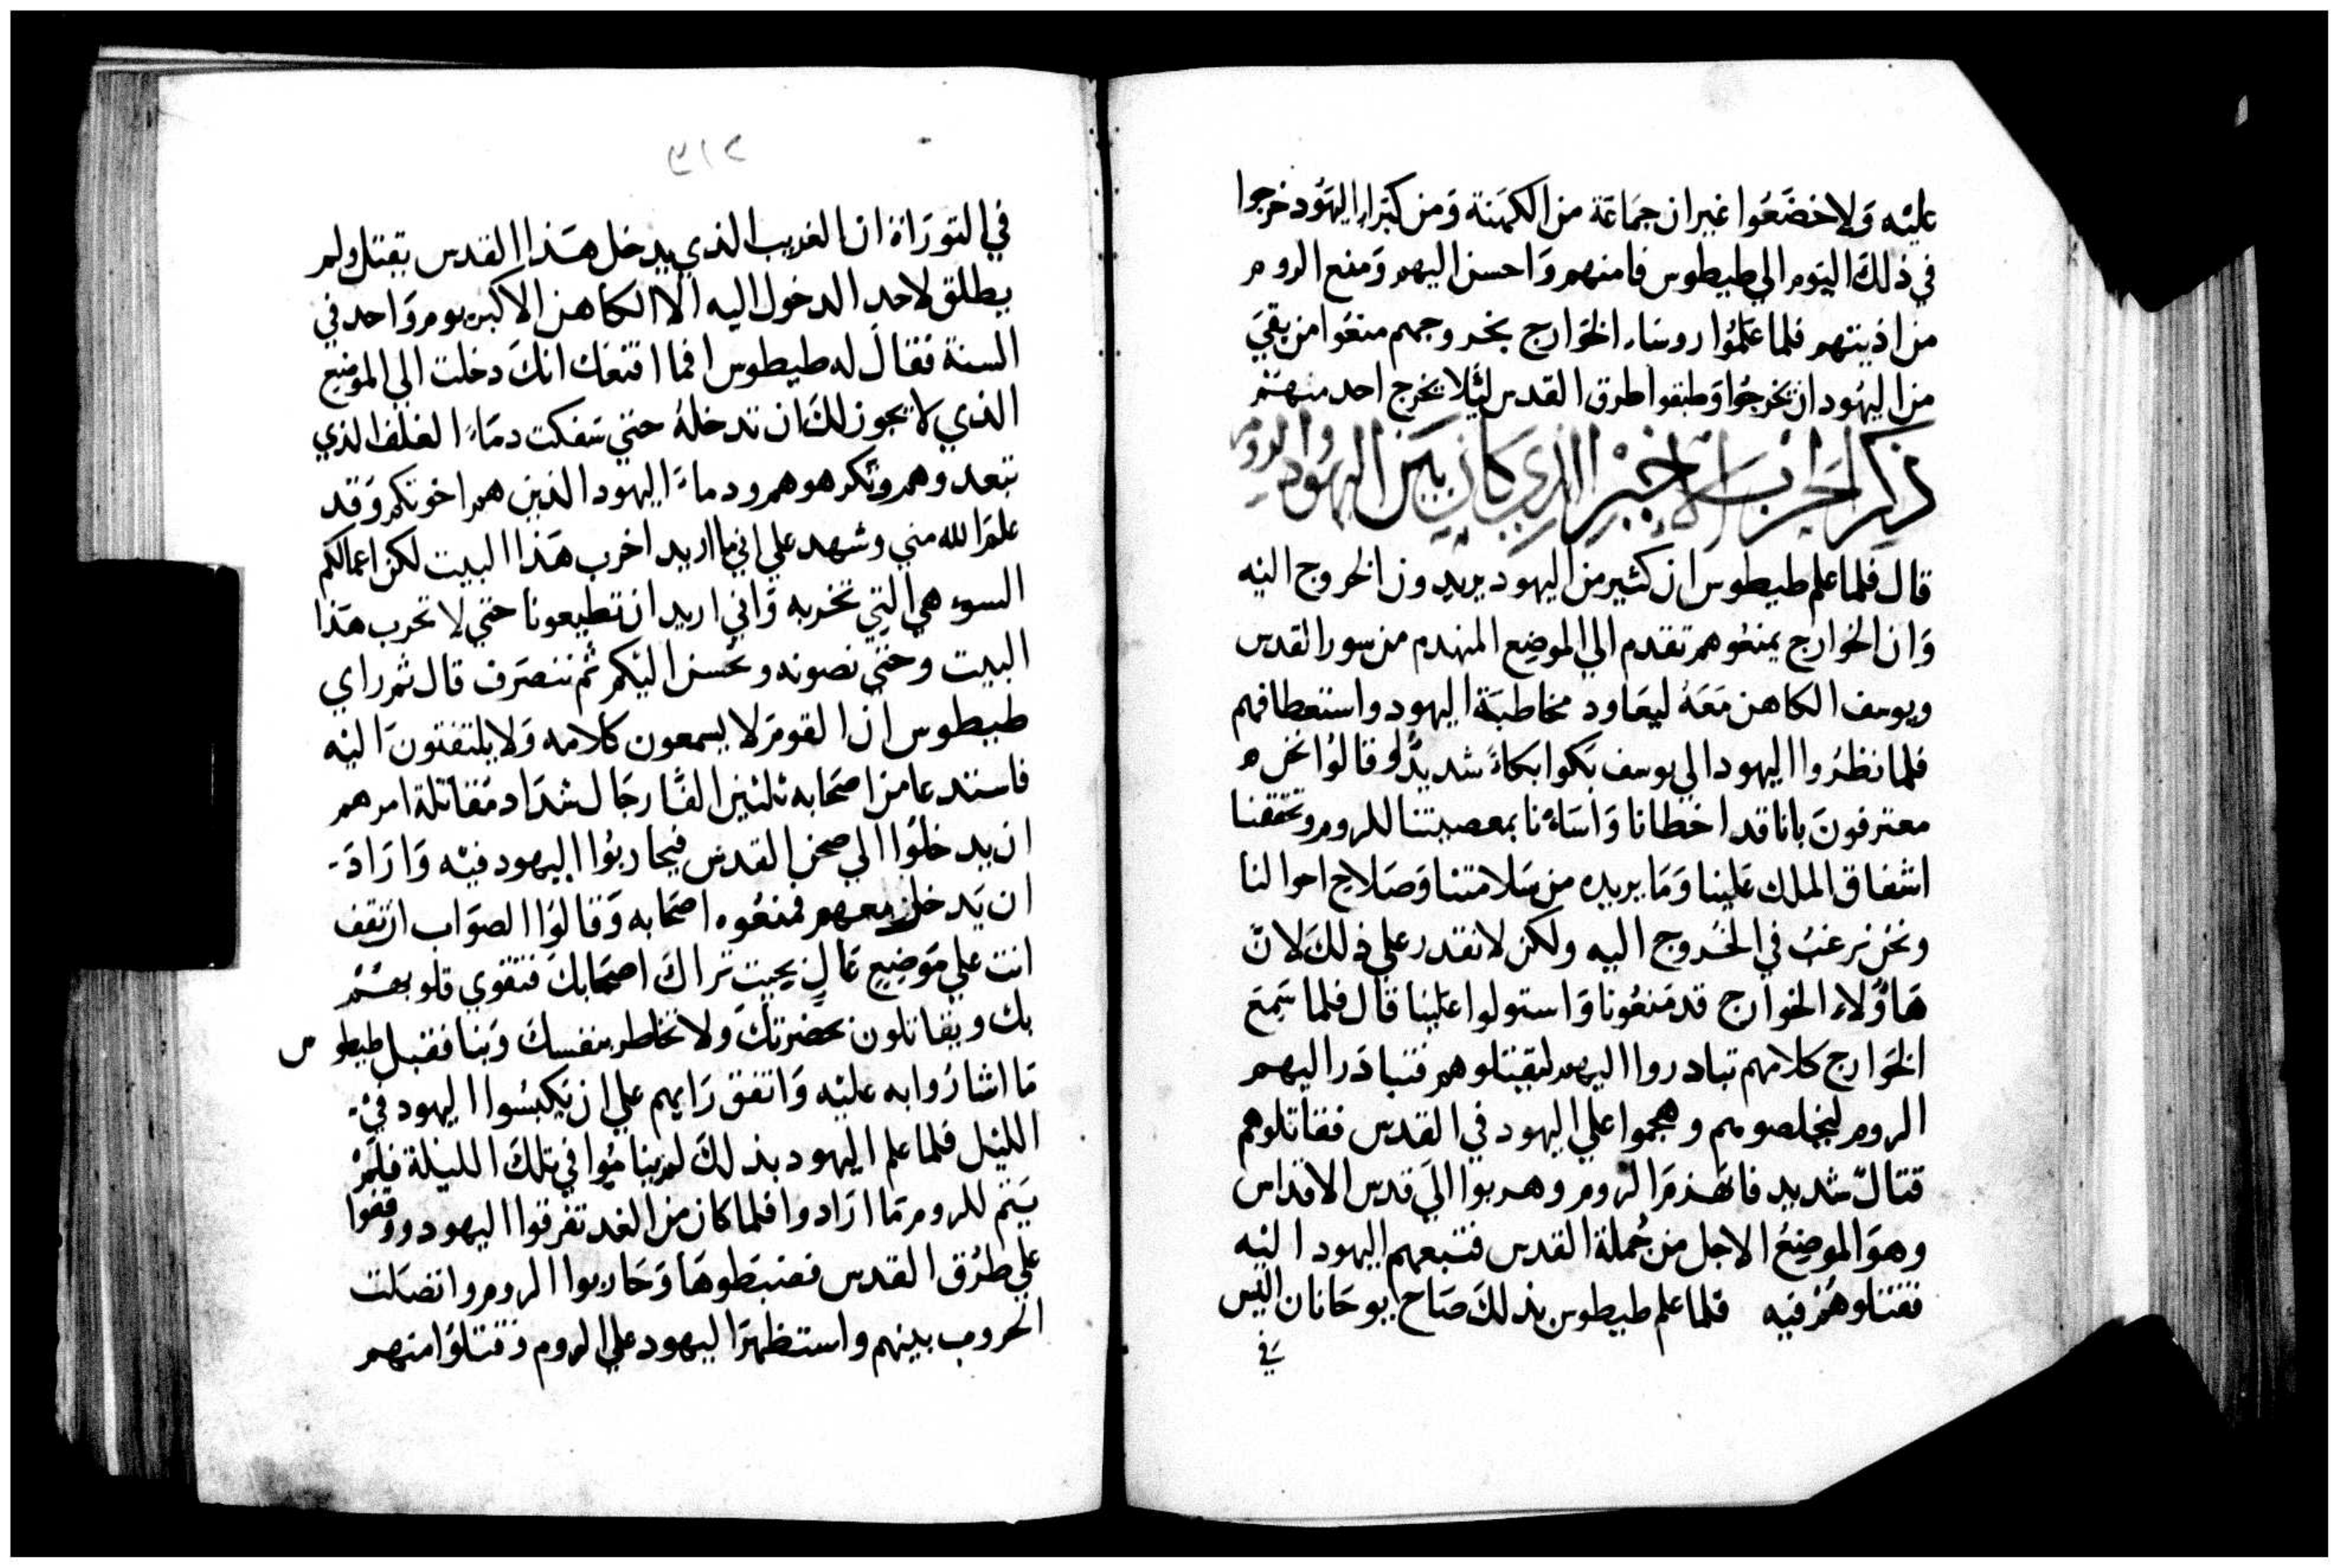 عليْه وَلا خضَعُوا غير ان جمَاعَة من الكهَنة وَمن كبَراء اليهُود خرجوا
في ذلكَ اليَوم الي طيطوس فامنهم وَاحسن اليهم وَمنع الروم
من اذيتهم فلما عَلمُوا روسَاء الخوَارج بخروجهم منعُوا من بقيَ
من اليهُود ان يخرجُوا وَطبقوا طرق القدس ليَلا يخرج احد منهُمْ
ذكر الحَرْب الاخيْر الذي كان بَيْن اليهُود والروم
قال فلما علم طيطوس ان كثير من اليهود يريدون الخروج اليْه
وَان الخوارج يمنعُوهم تقدم الي الموضِع المنهدم من سور القدس
ويوسف الكاهن مَعَهُ ليعَاود مخاطبَة اليهود واستعطافهم
فلما نظرُوا اليهود الي يوسف بَكوا بكاءً شديدًا وقالوُا نحن
معترفونَ بانا قد اخطانا وَاسَاءْنا بمعصيتنا للروم وتحققنا
اشفاق الملك عَلينا وَمَا يريده من سَلامتنا وَصَلاح احوالنا
ونحن نرغبُ في الخرُوج اليه ولكن لا نقدر علي ذلكَ لانّ
هَاؤُلاء الخوارج قد مَنعُونا وَاستولوا عَلينا قال فلما سَمعَ
الخوَارج كلامهم تبادروا اليهم ليقتلوهم فتبادَر اليهم
الروم ليخلصوهم وهجموا علي اليهود في القدس فقاتلوهم
قتالّ شديد فانهَزمَ الروم وهربوا الي قدس الاقداس
وهوَ الموضِعُ الاجل من جُملة القدس فتبعهم اليهود اليْه
فقتلوهُمْ فيه فلما علم طيطوس بذلكَ صَاح ايوحَانان اليس
في
٢١٥
في التورَاة ان الغريب الذي يدخل هَذا القدس يقتل ولم
يطلق لاحد الدخول اليه الا الكاهن الاكبر يوم وَاحد في
السنة فقال له طيطوس افما اقنعك انكَ دخلت الي الموضِع
الذي لا يجوز لكَ ان تدخلهُ حتي سَفكت دمَاءً الغلف الذي
تبعدوهم وتكرهوهم ودماءَ اليهود الذين هم اخوتكم وَقد
علمَ الله مني وشهد علي اني ما اريد اخرب هَذا البيت لكن اعمالكم
السوء هي التي تخربه وَاني اريد ان تطيعونا حتي لا تخرب هَذا
البيت وحتي نصونه ونحسن اليْكم ثم ننصَرف قال ثم راي
طيطوس ان القومَ لا يسمعون كلامه وَلا يلتفتونَ اليْه
فاستدعا من اصحَابه ثلثين الفًا رجَال شدَاد مقاتلة امرهم
ان يدخلوُا الي صحن القدس فيحاربوُا اليهود فيْه وَارَادَ
ان يَدخل معهم فمنعُوه اصحَابه وَقالوُا الصوَاب ان تقف
انت علي مَوضِعٍ عَالٍ بحيث تراكَ اصحَابكَ فتقوي قلوبهُمْ
بك ويقاتلون بحضرتكَ ولا تخاطر بنفسكَ وَبنا فقبل طيطوس
مَا اشارُوا به عليْه وَاتفق رَايهم علي ان يَكبسُوا اليهود في
الليْل فلما علم اليهود بذلكَ لم ينامُوا في تلكَ الليْلة فلمْ
يَتم للروم مَا ارَادوا فلما كان من الغد تفرقوا اليهود ووقفوا
علي طرُق القدس فضبَطوهَا وَحَاربوا الروم واتصَلت
الحروب بينهم واستظهرَ اليهود علي الروم وقتلوُا منهم